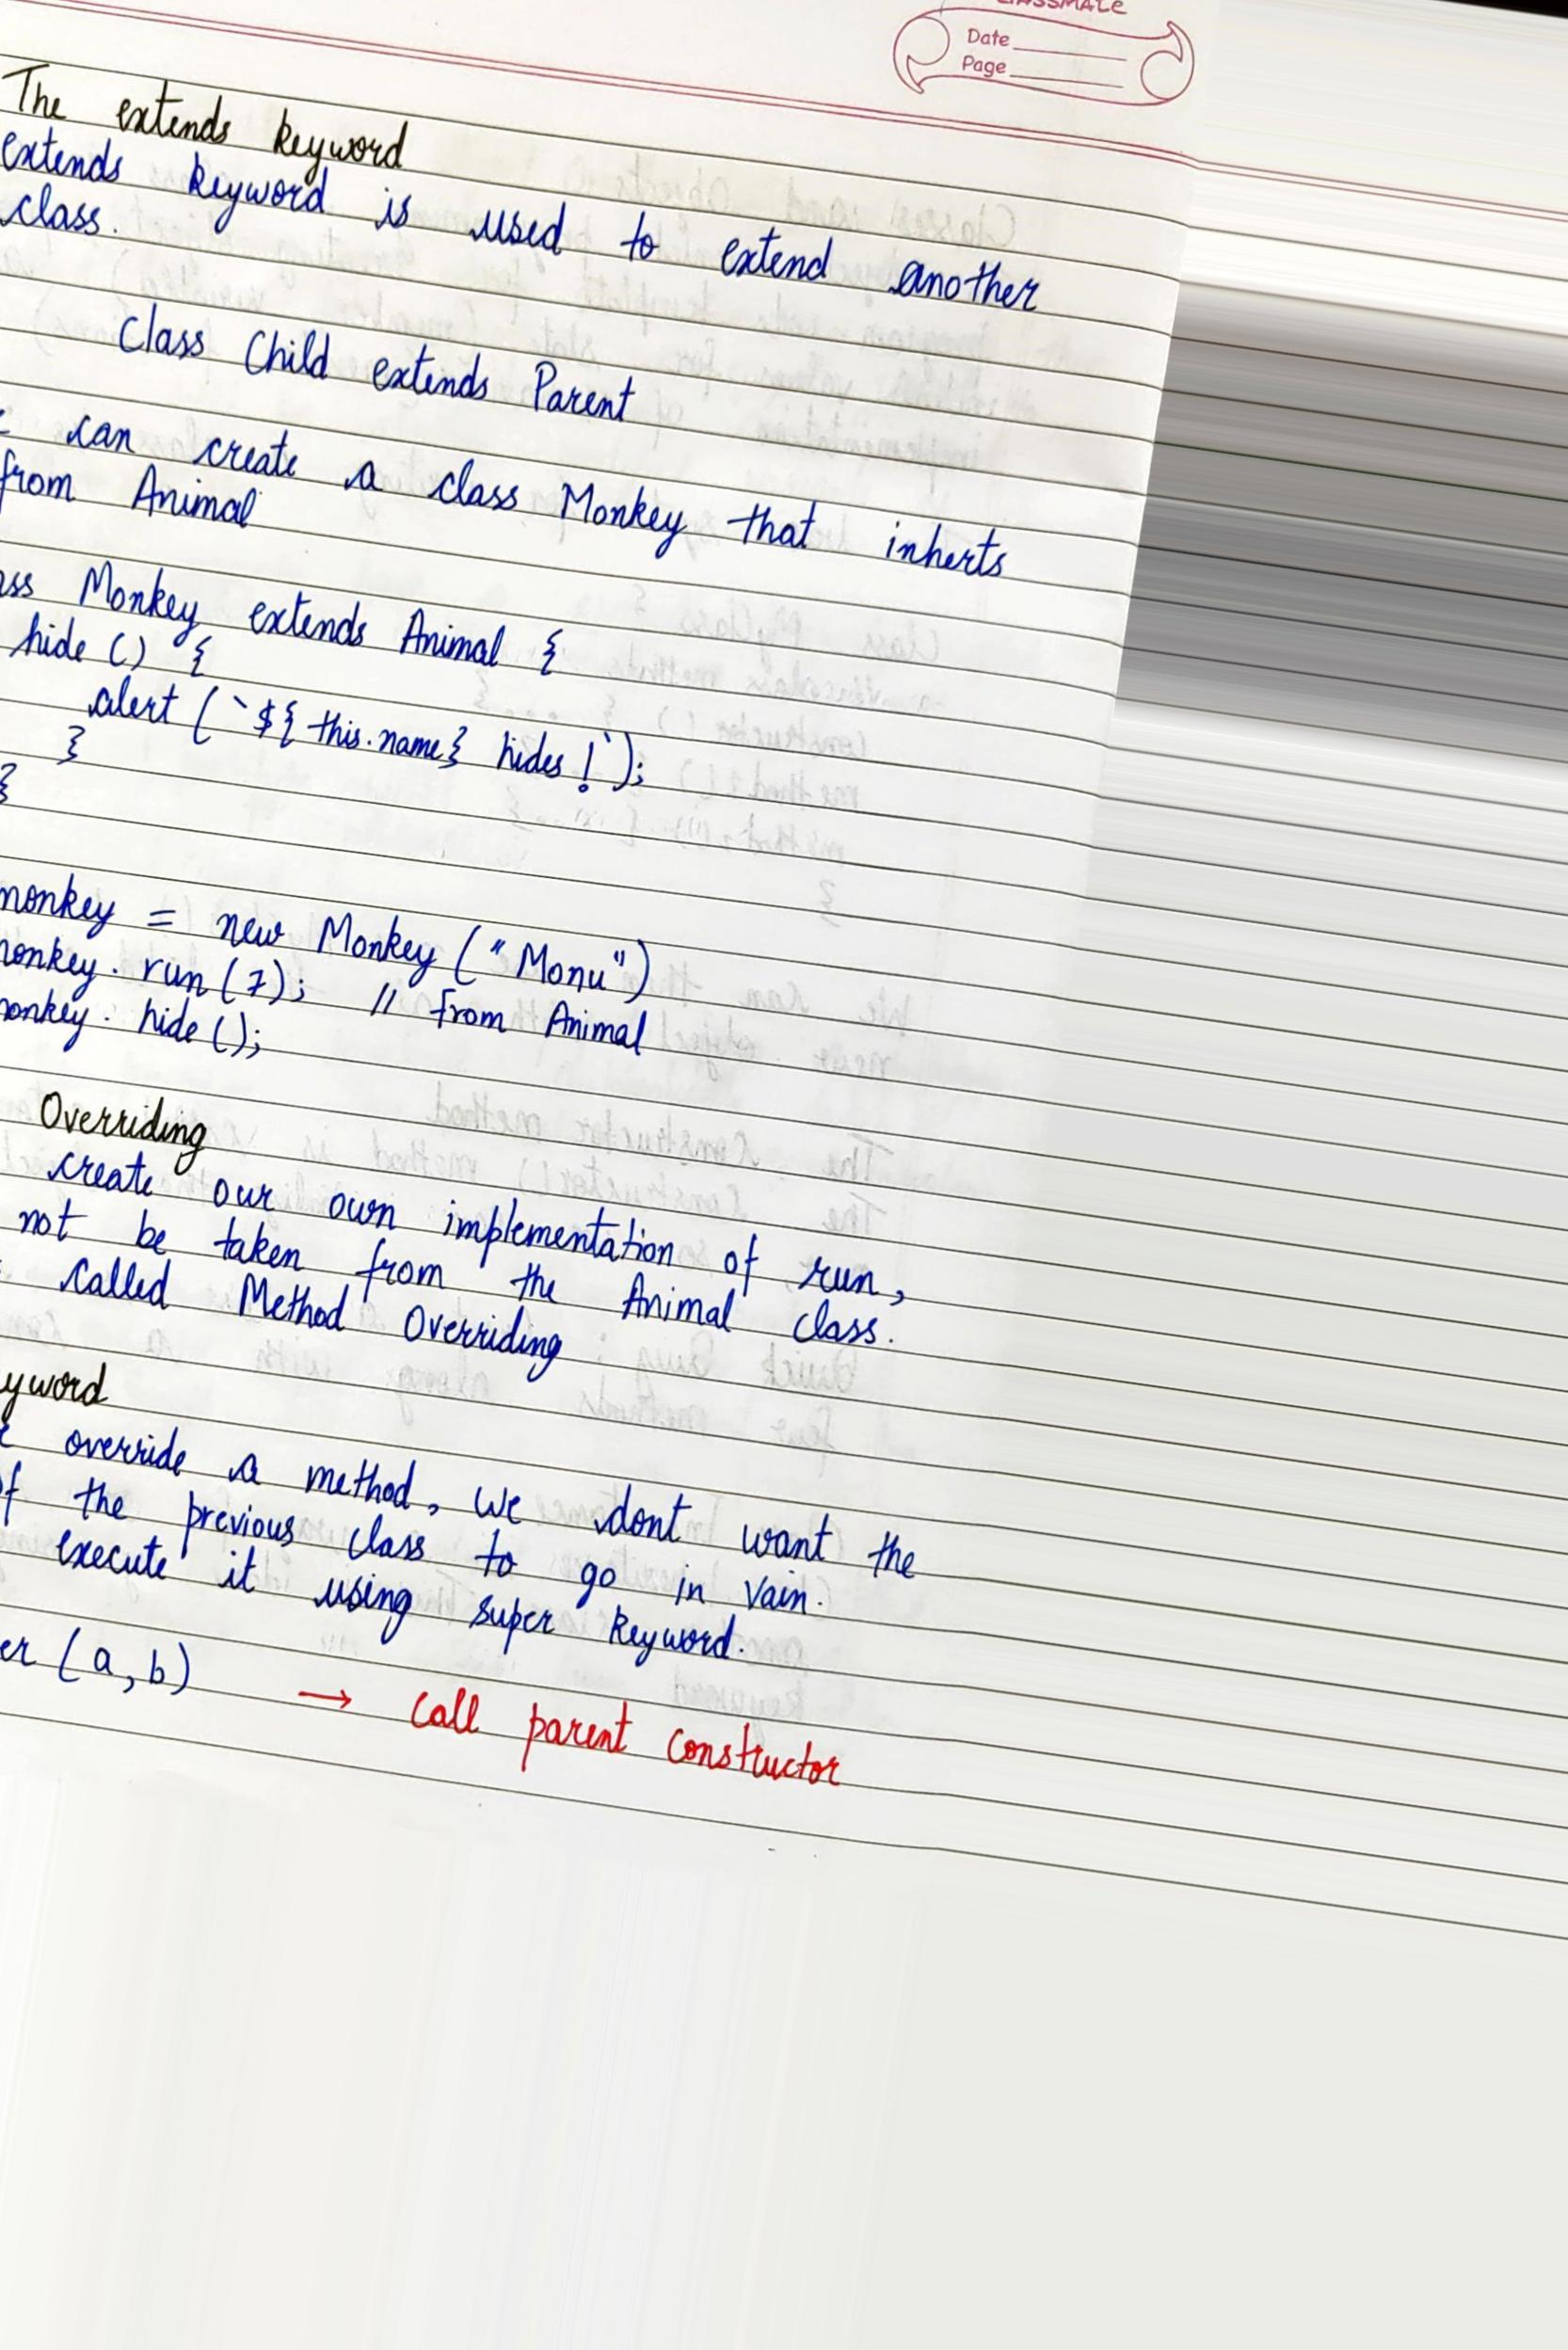 Date
Page
The extends keyword
extends keyword is used to extend another
class.
Class Child extends Parent
can create a class Monkey that inherts
from Animal
Monkey extends Animal {
hide () {
alert (`${this.name} hides!`);
}
}
monkey = new Monkey ("Monu")
monkey. run (7); // from Animal
monkey. hide ();
Overriding
create our own implementation of run,
not be taken from the Animal class.
called Method Overriding
override a method, we dont want the
the previous class to go in vain.
execute it using super keyword.
(a, b) → Call parent constructor